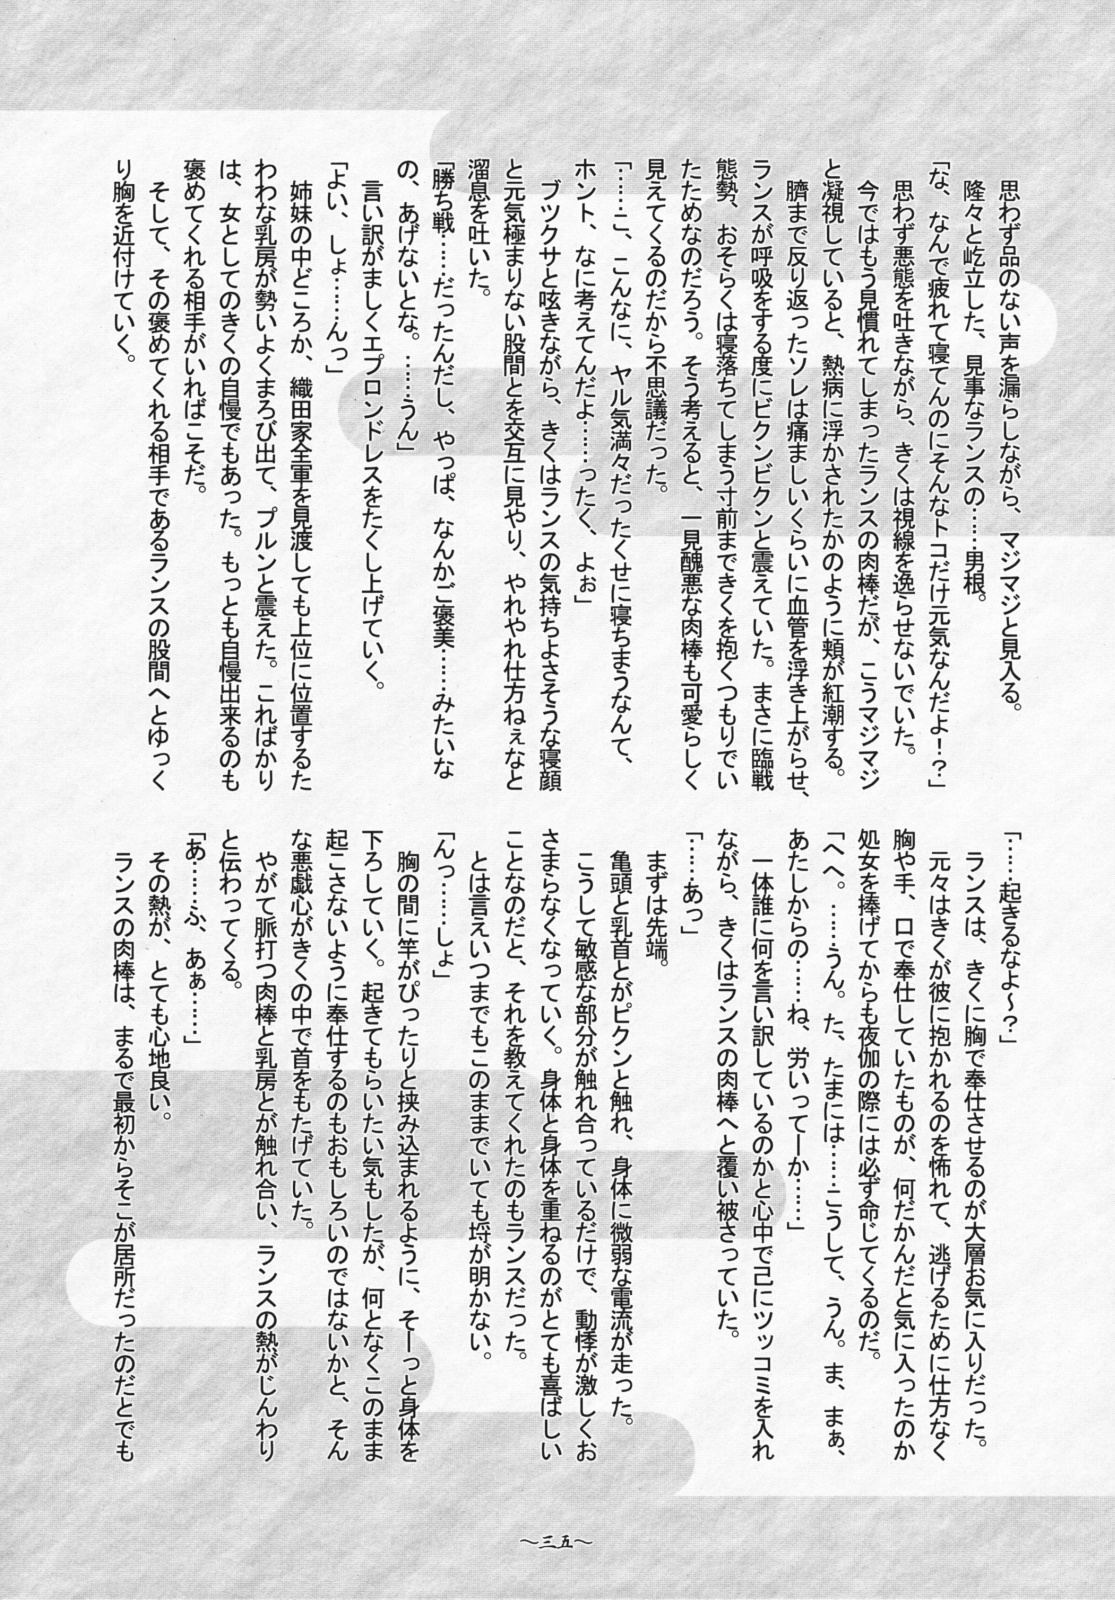 思わず品のない声を漏らしながら、マジマジと見入る。
隆々と屹立した、見事なランスの……男根。
「な、なんで疲れて寝てんのにそんなトコだけ元気なんだよ！？」
思わず悪態を吐きながら、きくは視線を逸らせないでいた。
今ではもう見慣れてしまったランスの肉棒だが、こうマジマジ
と凝視していると、熱病に浮かされたかのように頬が紅潮する。
臍まで反り返ったソレは痛ましいくらいに血管を浮き上がらせ、
ランスが呼吸をする度にビクンビクンと震えていた。まさに臨戦
態勢、おそらくは寝落ちてしまう寸前まできくを抱くつもりでい
たためなのだろう。そう考えると、一見醜悪な肉棒も可愛らしく
見えてくるのだから不思議だった。
「……」、こんなに、ヤル気満々だったくせに寝ちまうなんて、
ホント、なに考えてんだよ……ったく、よぉ」
ブツクサと呟きながら、きくはランスの気持ちよさそうな寝顔
と元気極まりない股間とを交互に見やり、やれやれ仕方ねぇなと
溜息を吐いた。
「勝ち戦……だったんだし、やっぱ、なんかご褒美……みたいな
の、あげないとな。……うん」
言い訳がましくエプロンドレスをたくし上げていく。
「よい、しょ……んっ」
姉妹の中どころか、織田家全軍を見渡しても上位に位置するた
わわな乳房が勢いよくまろび出て、プルンと震えた。こればかり
は、女としてのきくの自慢でもあった。もっとも自慢出来るのも
褒めてくれる相手がいればこそだ。
そして、その褒めてくれる相手であるランスの股間へとゆっく
り胸を近付けていく。
「……起きるなよ～？」
ランスは、きくに胸で奉仕させるのが大層お気に入りだった。
元々はきくが彼に抱かれるのを怖れて、逃げるために仕方なく
胸や手、口で奉仕していたものが、何だかんだと気に入ったのか
処女を捧げてからも夜伽の際には必ず命じてくるのだ。
「へへ。……うん。た、たまには……こうして、うん。ま、まぁ、
あたしからの……ね、労いってーか……」
一体誰に何を言い訳しているのかと心中で己にツッコミを入れ
ながら、きくはランスの肉棒へと覆い被さっていた。
「……あっ」
まずは先端。
亀頭と乳首とがピクンと触れ、身体に微弱な電流が走った。
こうして敏感な部分が触れ合っているだけで、動悸が激しくお
さまらなくなっていく。身体と身体を重ねるのがとても喜ばしい
ことなのだと、それを教えてくれたのもランスだった。
とは言えいつまでもこのままでいても埒が明かない。
「んっ……しょ」
胸の間に竿がぴったりと挟み込まれるように、そーっと身体を
下ろしていく。起きてもらいたい気もしたが、何となくこのまま
起こさないように奉仕するのもおもしろいのではないかと、そん
な悪戯心がきくの中で首をもたげていた。
やがて脈打つ肉棒と乳房とが触れ合い、ランスの熱がじんわり
と伝わってくる。
「あ……ふ、あぁ……」
その熱が、とても心地良い。
ランスの肉棒は、まるで最初からそこが居所だったのだとでも
～三五～